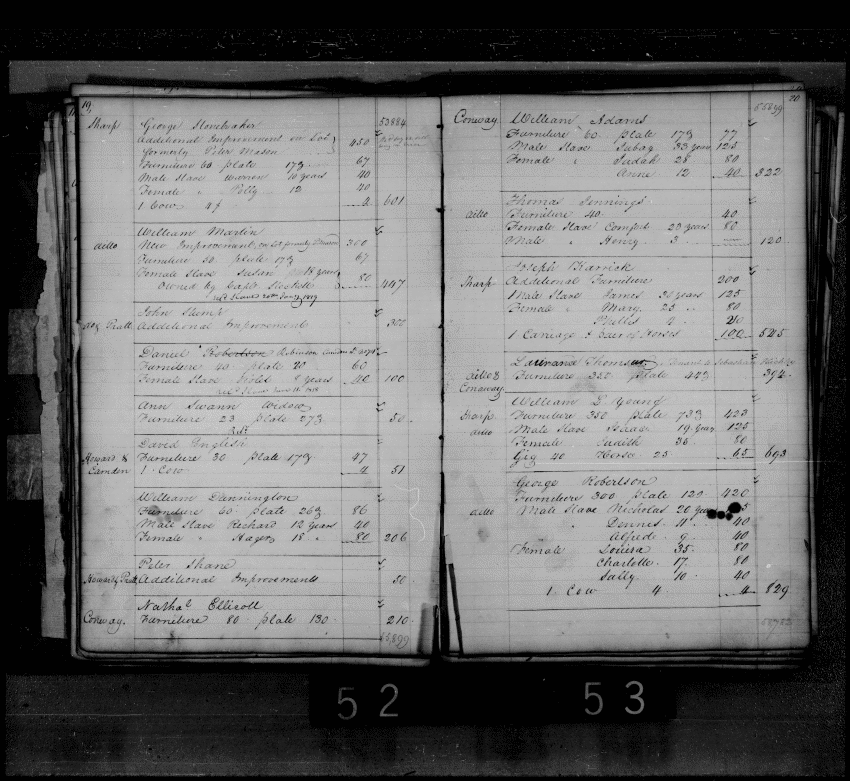 19.
53884
Sharp George Stonebraker
Additional Improvement on Lot
formerly Peter Mason 450
Furniture 60 plate 17 67
Male Slave Warren 10 years 40
Female " Polly 12 40
1 Cow 4 4 601
William Martin
ditto New Improvement, on Lot formerly 300
Furniture 50 plate 17 67
Female Slave Susan 18 years
Owned by Capt. 80 447
John Stump
Additional Improvement 300
Daniel Robertson Robinson
Furniture 40 plate 20 60
Female Slave Violet 8 years 40 100
Ann Swann Widow
Furniture 23 plate 27 50
David English
Howard & Furniture 30 plate 17 47
Camden 1 Cow 4 51
William Dannington
Furniture 60 plate 26 86
Male Slave Richard 12 years 40
Female " Hager 18 " 80 206
Peter Shane
Additional Improvements 50
Nathal Ellicott
Conway. Furniture 80 plate 130 210
55,899
20
55899
Conway William Adams
Furniture 60 plate 17 77
Male Slave 33 years 125
Female " Judah 28 80
Anne 12 40 322
Thomas Jennings
ditto Furniture 40 40
Female Slave Comfort 23 years 80
Male " Henry 3 120
Joseph Karrick
Sharp Additional Furniture 200
1 Male Slave James 30 years 125
Female " Mary 25 " 80
9 20
1 Carriage & pair of Horses 100 525
Laurance Thomson
ditto & Furniture 350 plate 44 394
Conaway
William L Young
Sharp Furniture 350 plate 73 423
ditto Male Slave Isaac 19 years 125
Female Judith 36 80
Gig 40 Horse 25 65 693
George Robertson
Furniture 300 plate 120 420
ditto Male Slave Nicholas 20 years
" Dennis 11 40
Alfred 9 40
Female Louisa 35 80
Charlotte 17 80
Sally 10 40
1 Cow 4 4 829
52
53